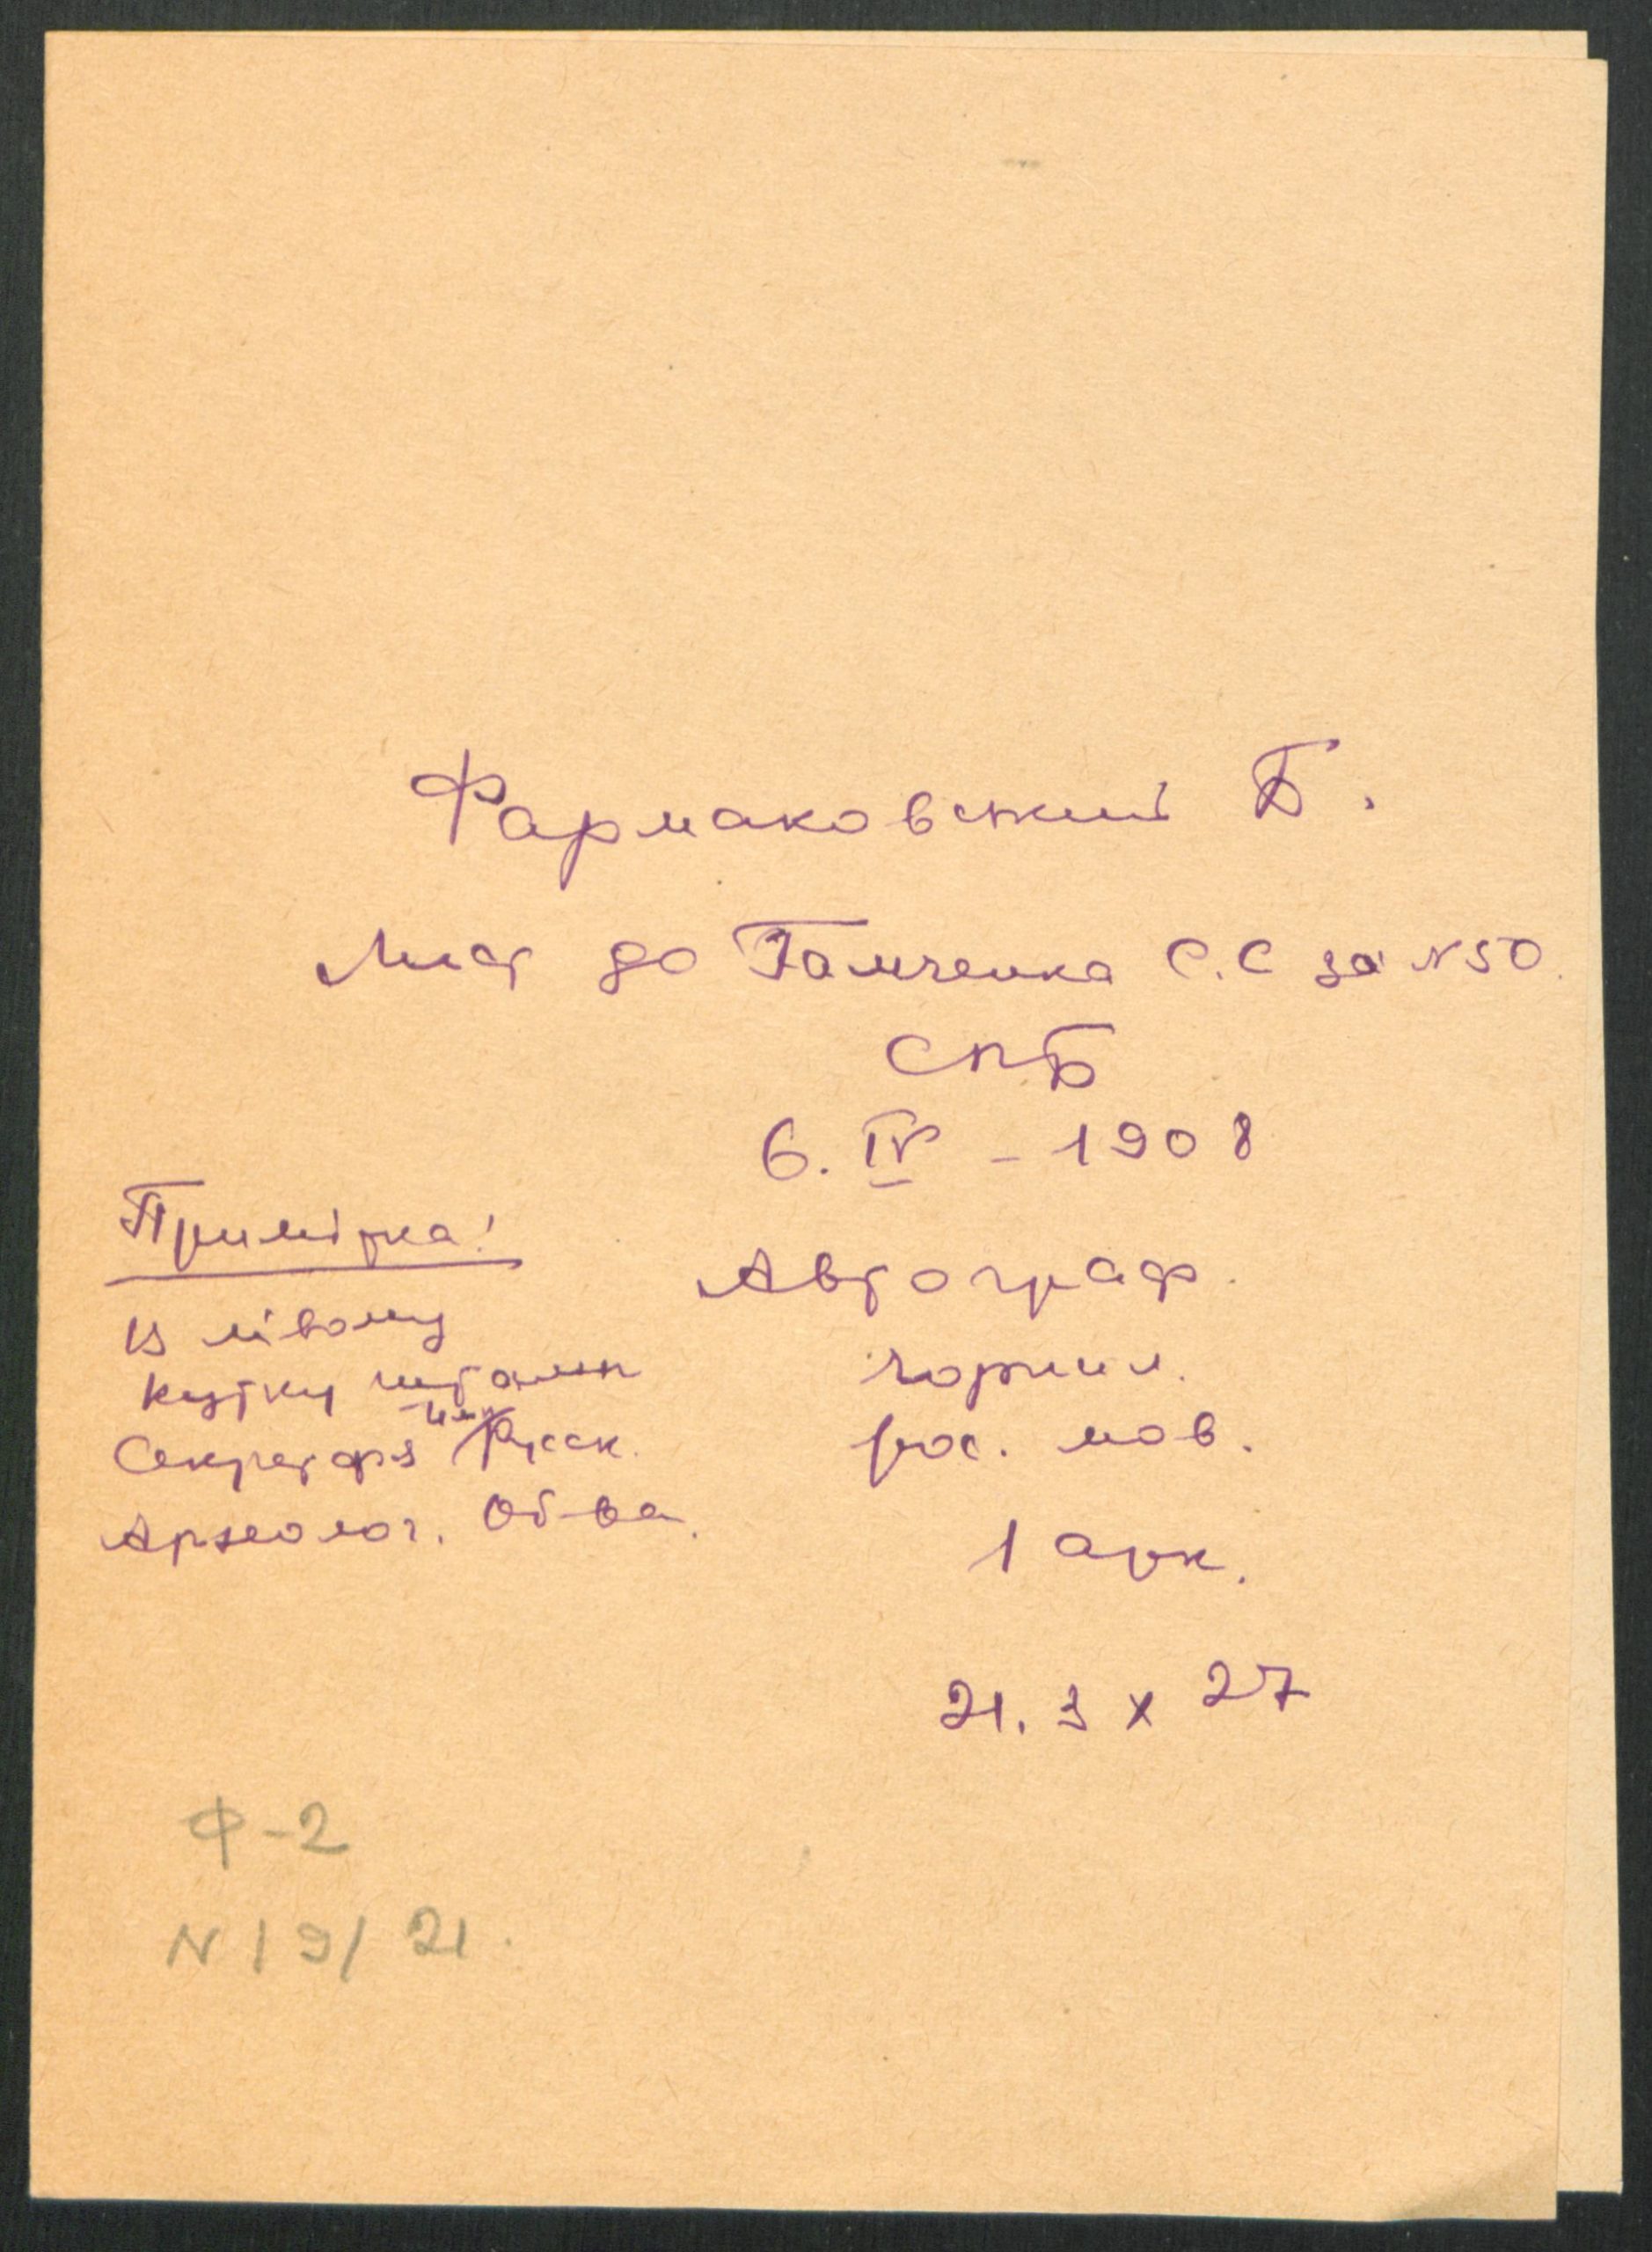 Фармаковський Б.
Лист до Гамченка С.С за №50.
СПБ
6. IV - 1908
Автограф.
чорнил.
рос. мов.
1 арк.
21.3 x 27
Примітка:
В лівому
кутку штамп
Секретарь Имп. Русск.
Археолог. Об-ва.
Ф-2
N 19/21.